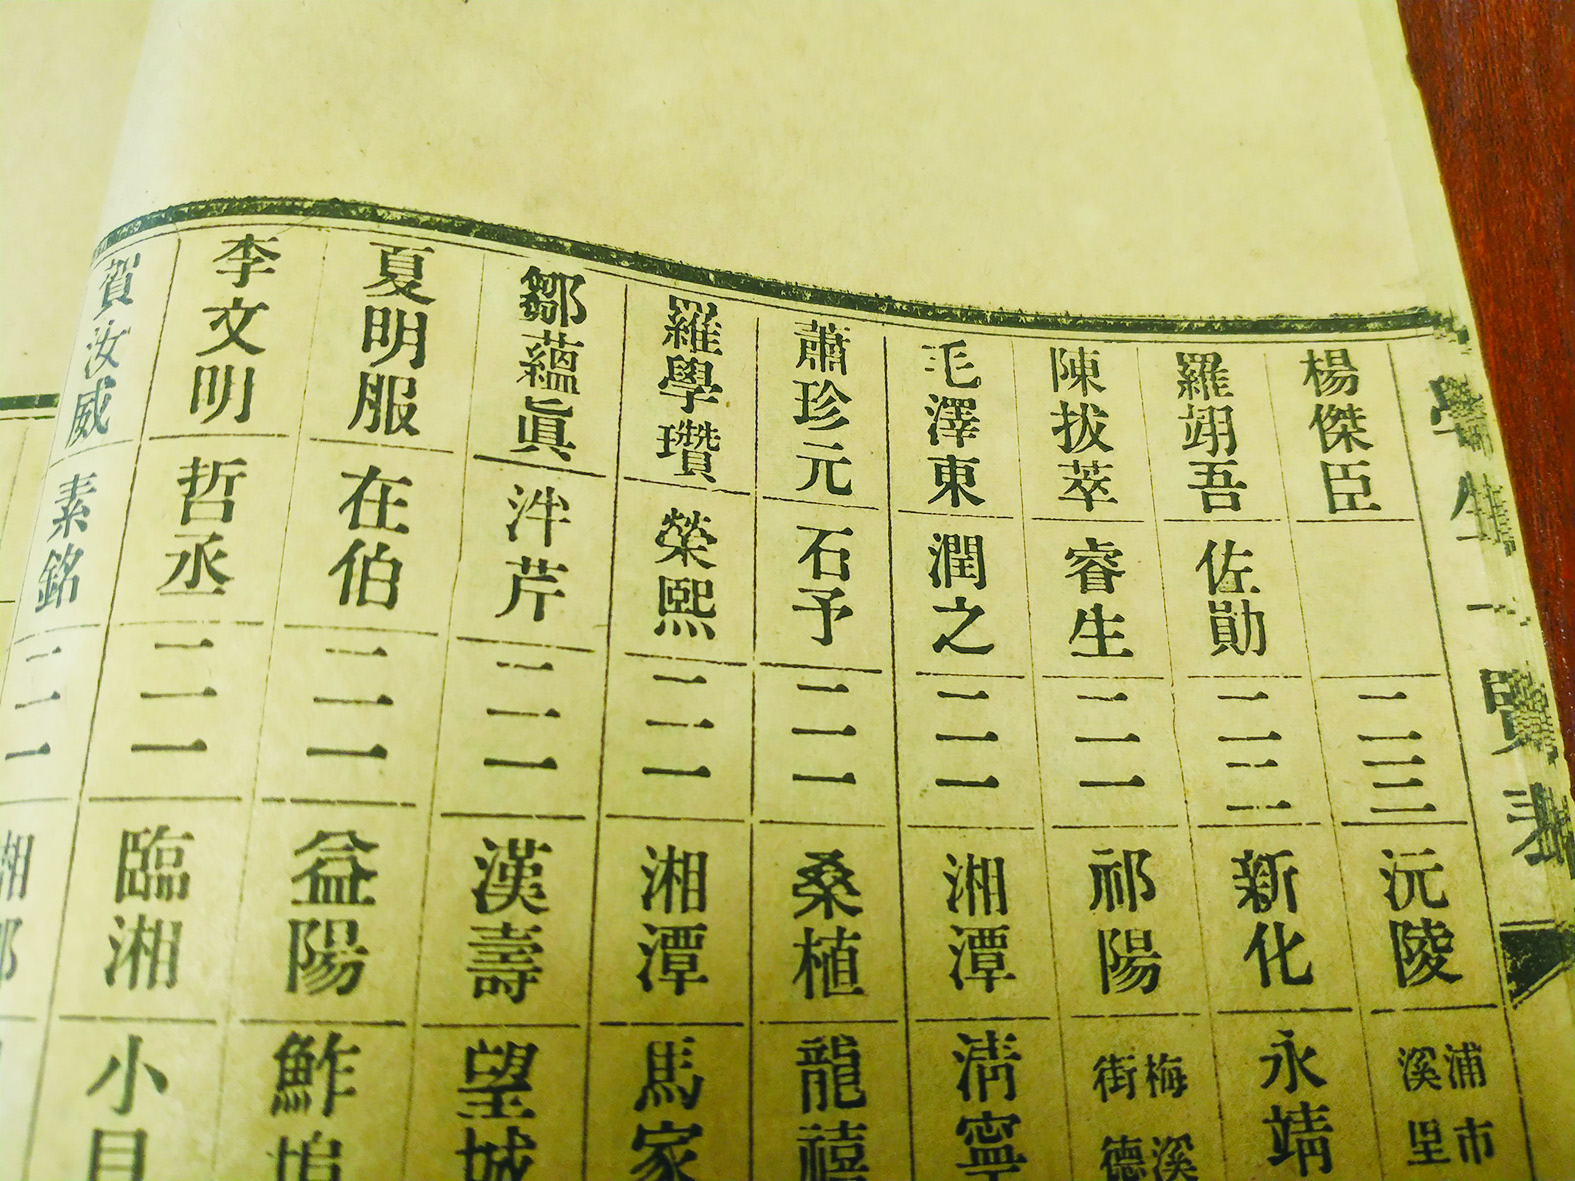 學生一覽表
楊傑臣 二二三 沅陵 浦市溪里
羅翊吾 佐勛 二二二 新化 永靖
陳拔萃 睿生 二二一 祁陽 梅溪街德
毛澤東 潤之 二二一 湘潭 清寧
蕭珍元 石予 二二一 桑植 龍禧
羅學瓚 榮熙 二二一 湘潭 馬家
鄒蘊眞 泮芹 二一一 漢壽 望城
夏明服 在伯 二一一 益陽 鮓埠
李文明 哲丞 二一一 臨湘 小
賀汝威 素銘 二一一 湘